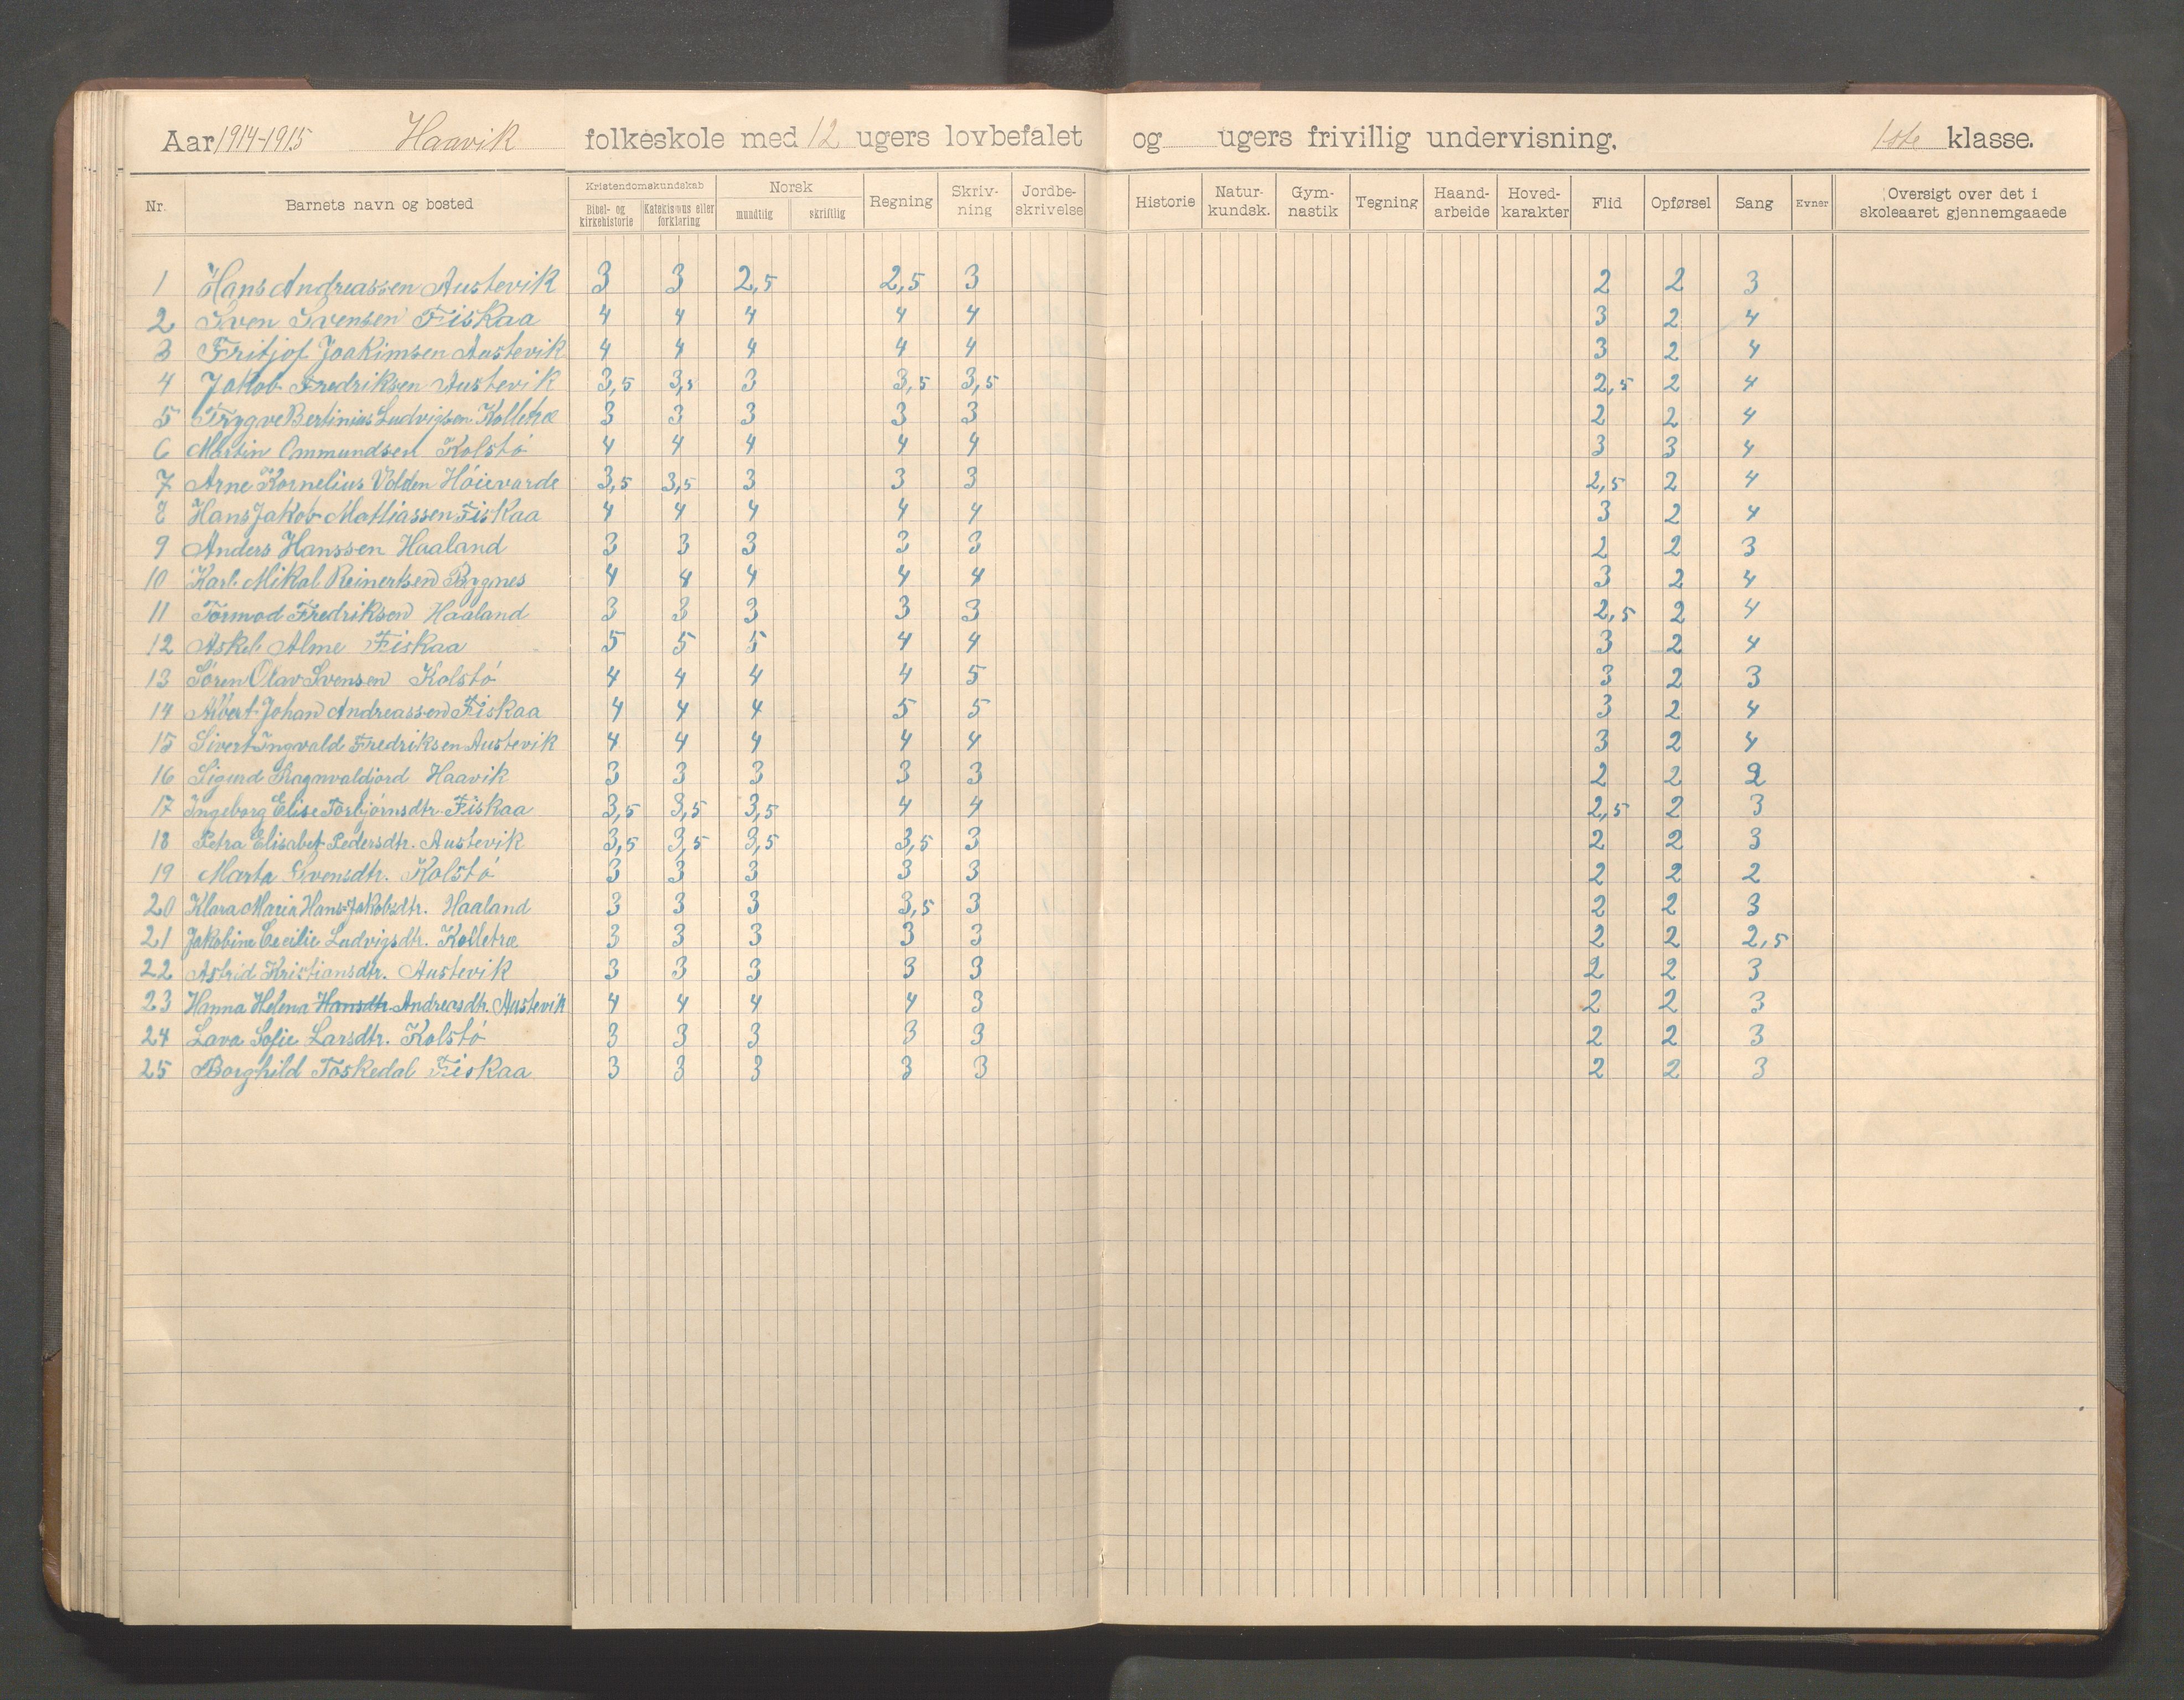 Aar 1914-1915 Haavik folkeskole med 12 ugers lovbefalet og ugers frivillig undervisning. 1ste klasse.
Nr. Barnets navn og bosted Kristendomskundskab Bibel- og kirkehistorie Katekismus eller forklaring Norsk mundtlig skriftlig Regning Skriv-ning Jordbe-skrivelse Historie Natur-kundsk. Gym-nastik Tegning Haand-arbeide Hoved-karakter Flid Opførsel Sang Evner Oversigt over det i skoleaaret gjennemgaaede
1 Hans Andreassen Austevik 3 3 2,5 2,5 3 2 2 3
2 Sven Svensen Fiskaa 4 4 4 4 4 3 2 4
3 Fritjof Joakimsen Austevik 4 4 4 4 4 3 2 4
4 Jakob Fredriksen Austevik 3,5 3,5 3 3,5 3,5 2,5 2 4
5 Trygve Bertinius Ludvigsen Kolletræ 3 3 3 3 3 2 2 4
6 Martin Ommundsen Kolstó 4 4 4 4 4 3 3 4
7 Arne Kornelius Volden Hóievarde 3,5 3,5 3 3 3 2,5 2 4
8 Hans Jakob Mathiassen Fiskaa 4 4 4 4 4 3 2 4
9 Anders Hanssen Haaland 3 3 3 3 3 2 2 3
10 Karl Mikal Reinertsen Bygnes 4 4 4 4 4 3 2 4
11 Tormod Fredriksen Haaland 3 3 3 3 3 2,5 2 4
12 Askel Alme Fiskaa 5 5 5 4 4 3 2 4
13 Sóren Olav Svensen Kolstó 4 4 4 4 5 3 2 3
14 Albert Johan Andreassen Fiskaa 4 4 4 5 5 3 2 4
15 Sivert Ingvald Fredriksen Austevik 4 4 4 4 4 3 2 4
16 Sigurd Ragnvaldjord Haavik 3 3 3 3 3 2 2 2
17 Ingeborg Elise Torbjórnsdtr. Fiskaa 3,5 3,5 3,5 4 4 2,5 2 3
18 Petra Elisabet Pedersdtr. Austevik 3,5 3,5 3,5 3,5 3 2 2 3
19 Marta Svensdtr. Kolstó 3 3 3 3 3 2 2 2
20 Klara Maria Hans-Jakobsdtr. Haaland 3 3 3 3,5 3 2 2 3
21 Jakobine Cecilie Ludvigsdtr. Kolletræ 3 3 3 3 3 2 2 2,5
22 Astrid Kristiansdtr. Austevik 3 3 3 3 3 2 2 3
23 Hanna Helena Hansdtr. Andreasdtr. Austevik 4 4 4 4 3 2 2 3
24 Lava Sofie Larsdtr. Kolstó 3 3 3 3 3 2 2 3
25 Borghild Toskedal Fiskaa 3 3 3 3 3 2 2 3